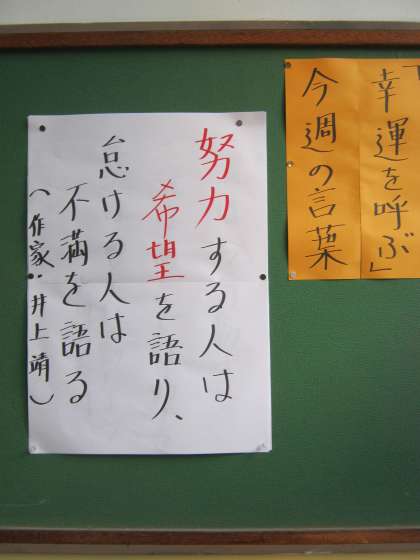 「幸運を呼ぶ」
今週の言葉
努力する人は
希望を語り、
怠ける人は
不満を語る
(作家・井上靖)